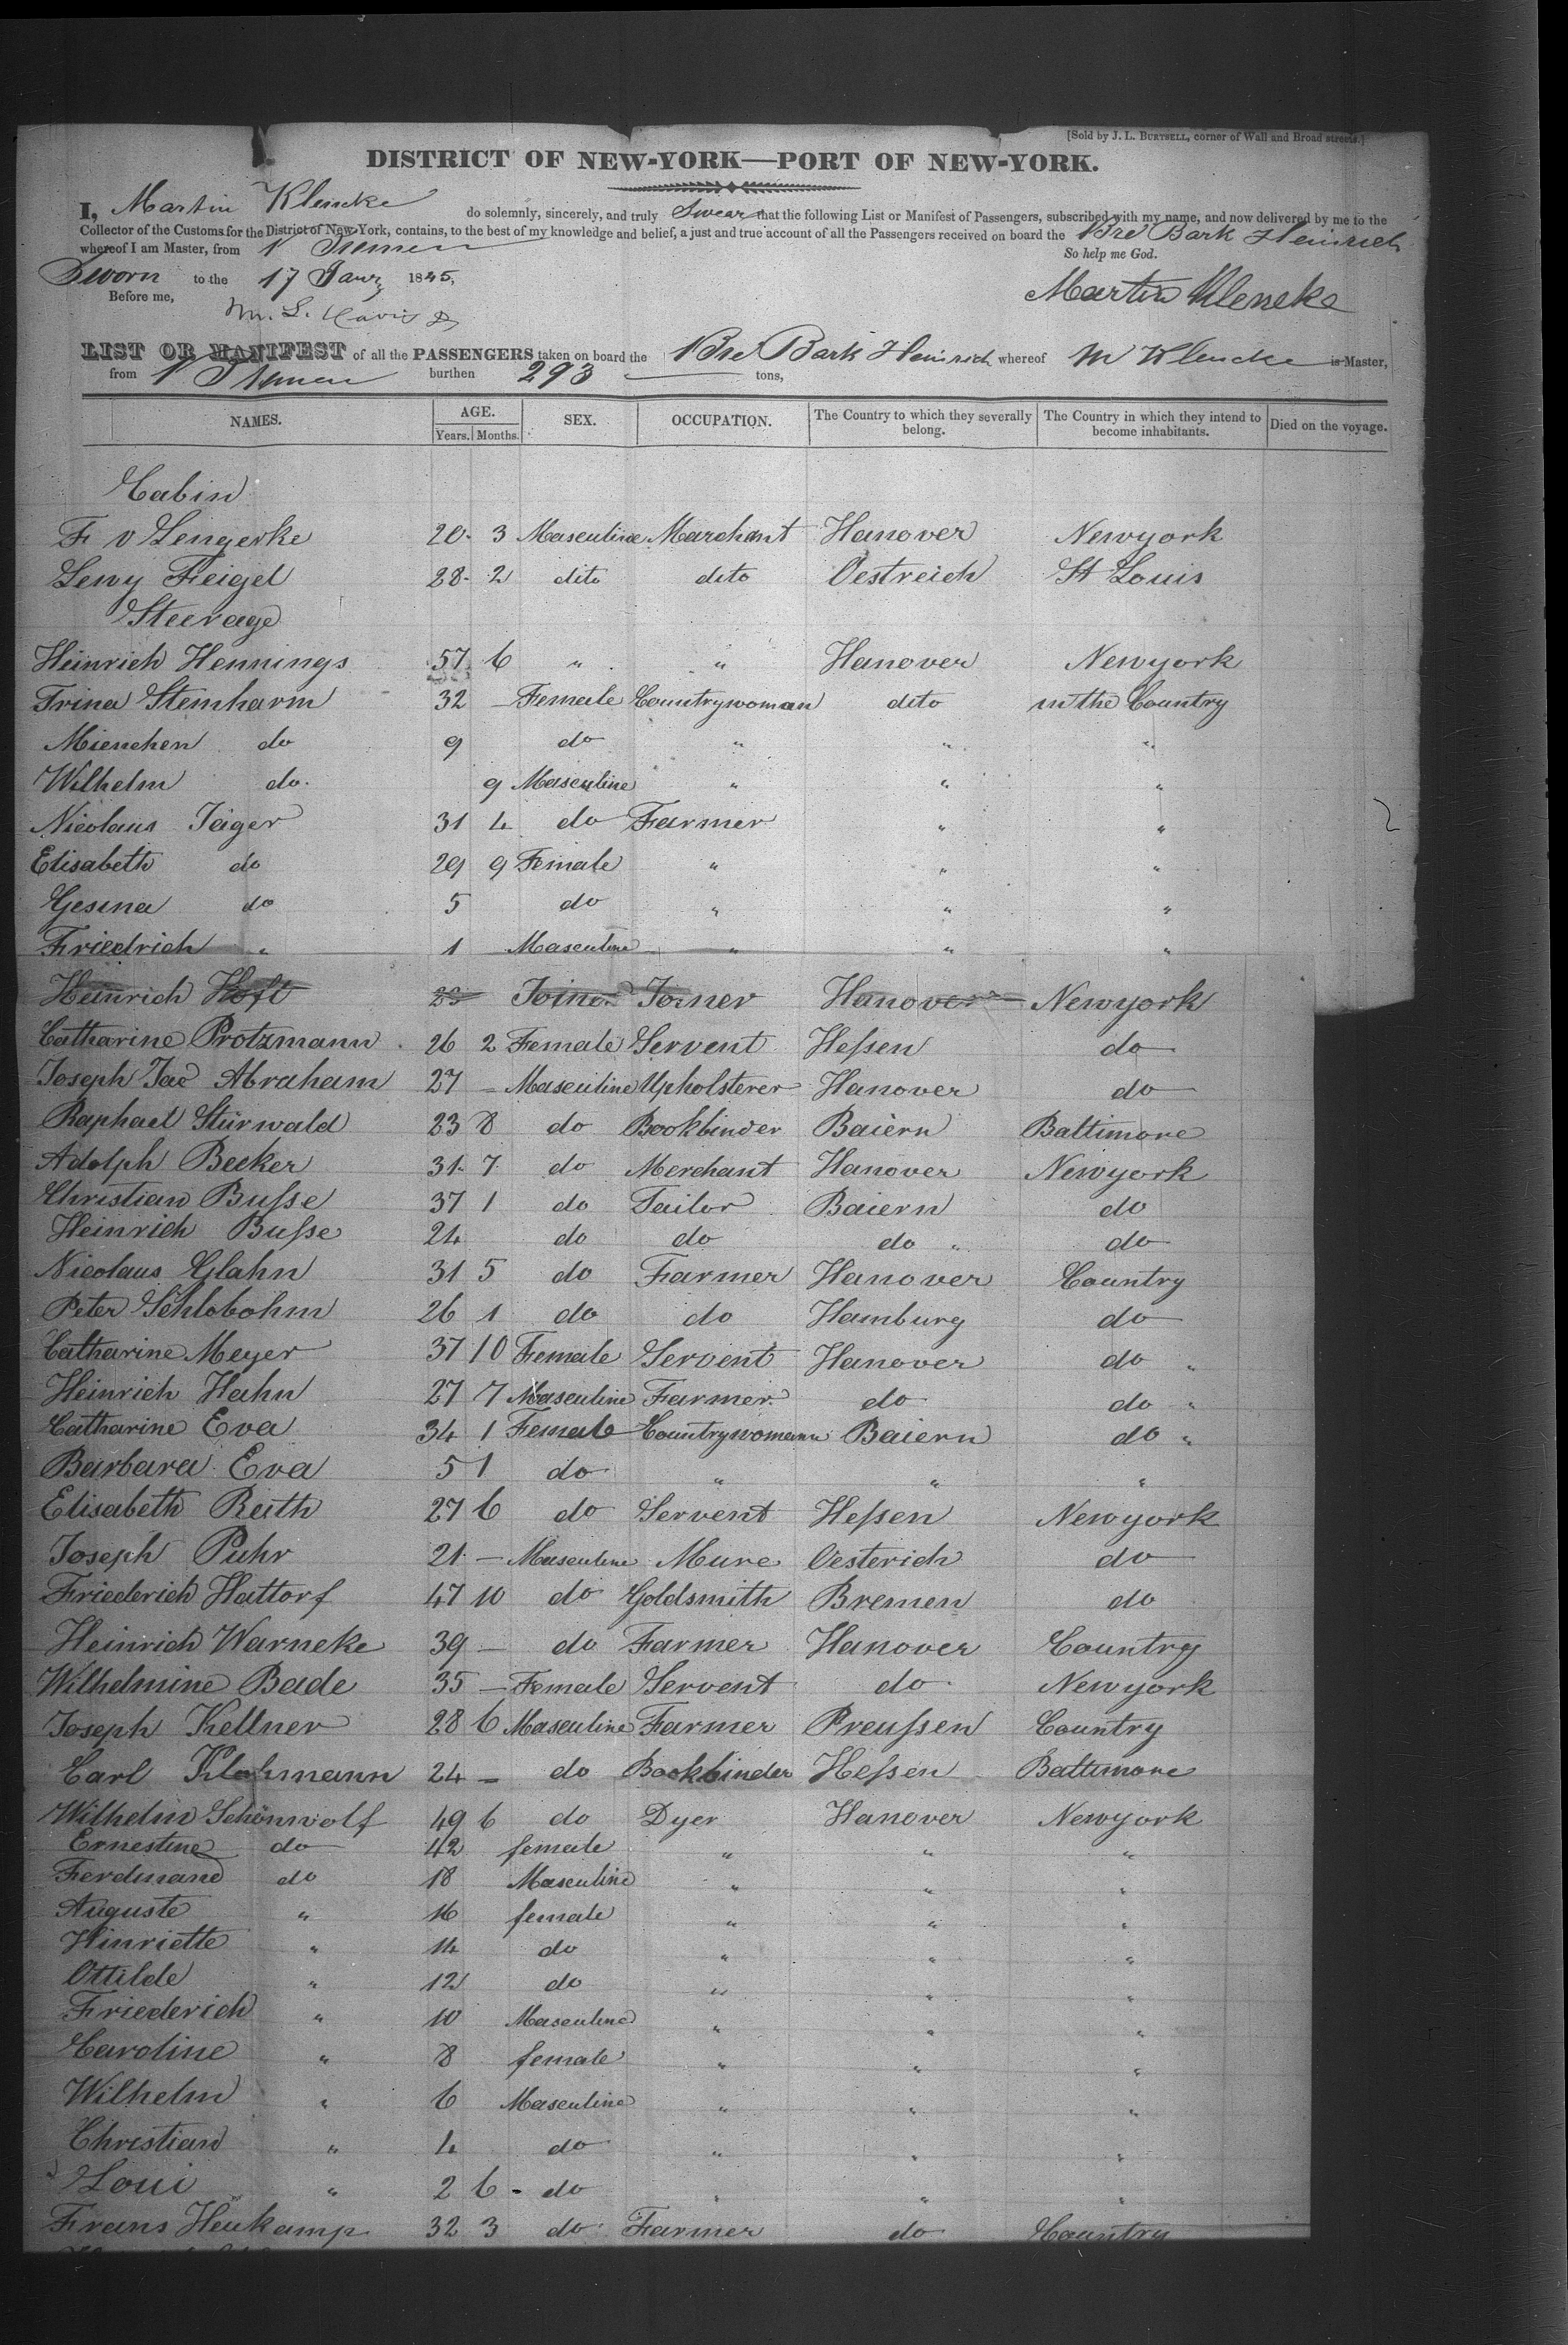 [Sold by J. L. BURTSELL, corner of Wall and Broad streets.]
DISTRICT OF NEW-YORK—PORT OF NEW-YORK.
I, Martin Klencke do solemnly, sincerely, and truly Swear that the following List or Manifest of Passengers, subscribed with my name, and now delivered by me to the
Collector of the Customs for the District of New-York, contains, to the best of my knowledge and belief, a just and true account of all the Passengers received on board the Bre Bark Heinrich
whereof I am Master, from Bremen So help me God.
Sworn to the 17 Jany 1845,
Before me, Martin Klencke
LIST OR MANIFEST of all the PASSENGERS taken on board the Bre Bark Heinrich whereof M Klencke is Master,
from Bremen burthen 293 tons,
NAMES. AGE. Years. Months. SEX. OCCUPATION. The Country to which they severally belong. The Country in which they intend to become inhabitants. Died on the voyage.
Cabin
F v Lengerke 20 3 Masculine Marchant Hanover Newyork
Lewy Feigel 28 2 dito dito Oestreich St Louis
Steerage
Heinrich Hennings 57 6 " " Hanover Newyork
Trina Stemharm 32 — Female Countrywoman dito in the Country
Mienchen do 9 do " " "
Wilhelm do 9 Masculine " " "
Nicolaus Jäger 31 4 do Farmer " "
Elisabeth do 29 9 Female " " "
Gesina do 5 do " " "
Friedrich " 1 Masculine " " "
Heinrich Hoft 23 Joiner Joiner Hanover Newyork
Catharine Protzmann 26 2 Female Servent Heſsen do
Joseph Jac Abraham 27 — Masculine Upholsterer Hanover do
Raphael Stürwald 23 8 do Bookbinder Baiern Baltimore
Adolph Becker 31 7 do Merchant Hanover Newyork
Christian Buſse 37 1 do Tailor Baiern do
Heinrich Buſse 24 do do do " do
Nicolaus Glahn 31 5 do Farmer Hanover Country
Peter Schlobohm 26 1 do do Hamburg do
Catharine Meyer 37 10 Female Servent Hanover do "
Heinrich Hahn 27 7 Masculine Farmer do do "
Catharine Eva 34 1 Female Countrywomann Baiern do "
Barbara Eva 5 1 do " " "
Elisabeth Reith 27 6 do Servent Heſsen Newyork
Joseph Puhr 21 — Masculine Mure Oesterich do
Friederich Hattorf 47 10 do Goldsmith Bremen do
Heinrich Warneke 39 — do Farmer Hanover Country
Wilhelmine Bade 35 — Female Servent do Newyork
Joseph Kellner 28 6 Masculine Farmer Preuſsen Country
Carl Klahmann 24 — do Bookbinder Heſsen Baltimore
Wilhelm Schönwolf 49 6 do Dyer Hanover Newyork
Ernestine do 42 female " " "
Ferdinand do 18 Masculine " " "
Auguste " 16 female " " "
Hinriette " 14 do " " "
Ottilde " 12 do " " "
Friederich " 10 Masculine " " "
Caroline " 8 female " " "
Wilhelm " 6 Masculine " " "
Christian " 4 do " " "
Loui " 2 6 - do " " "
Frans Heukamp 32 3 do Farmer do Country